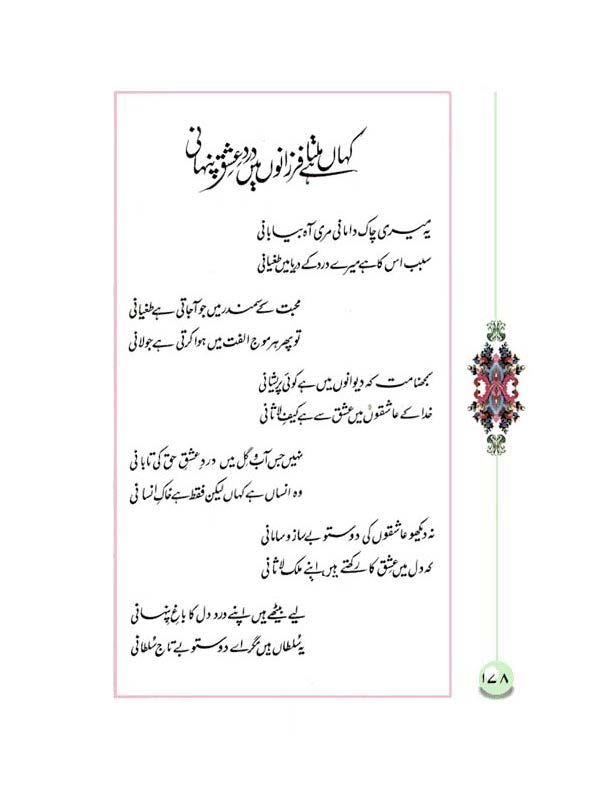 کہاں ملتا ہے فرزانوں میں دردِ عشقِ پنہانی
یہ میری چاک دامانی مری آہ بیابانی
سبب اس کا ہے میرے درد کے دریا میں طغیانی
محبت کے سمندر میں جو آجاتی ہے طغیانی
تو پھر ہر موج الفت میں ہوا کرتی ہے جولانی
سمجھنا مت کہ دیوانوں میں ہے کوئی پریشانی
خدا کے عاشقوں میں عشق سے ہے کیفِ لاثانی
نہیں جس آب و گِل میں دردِ عشقِ حق کی تابانی
وہ انساں ہے کہاں لیکن فقط ہے خاکِ انسانی
نہ دیکھو عاشقوں کی دوستو بے ساز و سامانی
کہ دل میں عشق کا رکھتے ہیں اپنے ملک لاثانی
لیے بیٹھے ہیں اپنے درد دل کا باغِ پنہانی
یہ سُلطاں ہیں مگر اے دوستو بے تاج سُلطانی
۱۷۸